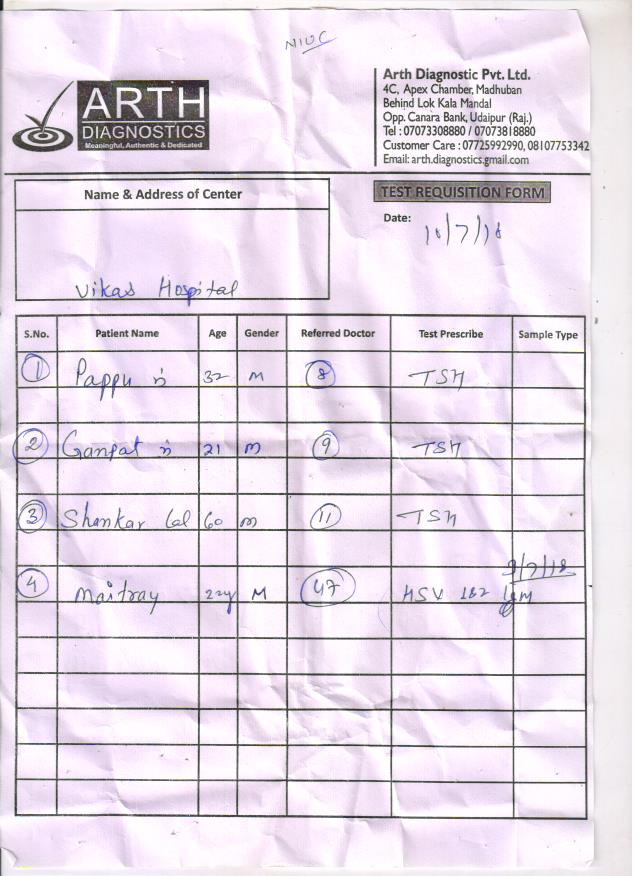 NIOC
ARTH
DIAGNOSTICS
Meaningful, Authentic & Dedicated
Arth Diagnostic Pvt. Ltd.
4C, Apex Chamber, Madhuban
Behind Lok Kala Mandal
Opp. Canara Bank, Udaipur (Raj.)
Tel : 07073308880 / 07073818880
Customer Care : 07725992990, 08107753342
Email: arth.diagnostics.gmail.com
Name & Address of Center
Vikas Hospital
TEST REQUISITION FORM
Date: 10/7/18
S.No. Patient Name Age Gender Referred Doctor Test Prescribe Sample Type
1 Pappu 32 M 8 TSH
2 Ganpat 21 M 9 TSH
3 Shankar Lal 60 M 11 TSH
9/7/18
4 Maitray 22y M 47 HSV 1&2 IgM